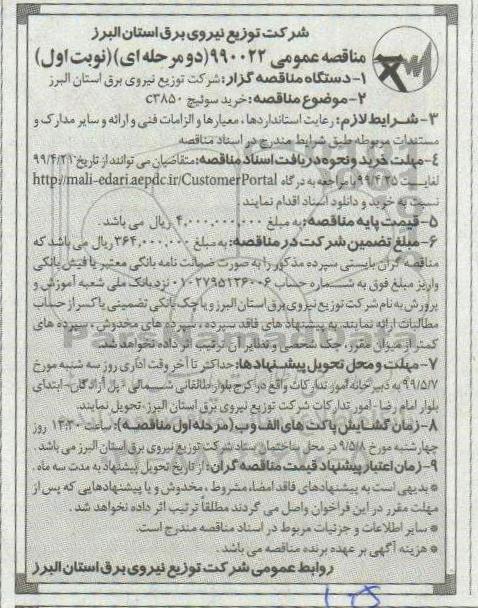 شرکت توزیع نیروی برق استان البرز
مناقصه عمومی ۹۹۰۰۲۲ (دو مرحله ای) (نوبت اول)
۱- دستگاه مناقصه گزار: شرکت توزیع نیروی برق استان البرز
۲- موضوع مناقصه: خرید سوئیچ c۳۸۵۰
۳- شرایط لازم: رعایت استانداردها، معیارها و الزامات فنی و ارائه و سایر مدارک و
مستندات مربوطه طبق شرایط مندرج در اسناد مناقصه
۴- مهلت خرید و نحوه دریافت اسناد مناقصه: متقاضیان می توانند از تاریخ ۹۹/۴/۲۱
لغایت ۹۹/۴/۲۵ با مراجعه به درگاه http://mali-edari.aepdc.ir/CustomerPortal
نسبت به خرید و دانلود اسناد اقدام نمایند.
۵- قیمت پایه مناقصه: به مبلغ ۴,۰۰۰,۰۰۰,۰۰۰ ریال می باشد.
۶- مبلغ تضمین شرکت در مناقصه: به مبلغ ۲۶۴,۰۰۰,۰۰۰ ریال می باشد که
مناقصه گران بایستی سپرده مذکور را به صورت ضمانت نامه بانکی معتبر یا فیش بانکی
واریز مبلغ فوق به شماره حساب ۰۱۰۲۷۹۵۱۲۶۰۰۶ نزد بانک ملی شعبه آموزش و
پرورش به نام شرکت توزیع نیروی برق استان البرز و یا چک بانکی تضمینی یا کسر از حساب
مطالبات ارائه نمایند. به پیشنهاد های فاقد سپرده، سپرده های مخدوش، سپرده های
کمتر از میزان مقرر، چک شخصی و نظایر آن ترتیب اثر داده نخواهد شد.
۷- مهلت و محل تحویل پیشنهادها: حداکثر تا آخر وقت اداری روز سه شنبه مورخ
۹۹/۵/۷ به دبیرخانه امور تدارکات واقع در کرج بلوار طالقانی شمالی - پل آزادگان - ابتدای
بلوار امام رضا - امور تدارکات شرکت توزیع نیروی برق استان البرز، تحویل نمایند.
۸- زمان گشایش پاکت های الف و ب (مرحله اول مناقصه): ساعت ۱۳:۳۰ روز
چهارشنبه مورخ ۹/۵/۸ در محل ساختمان ستاد شرکت توزیع نیروی برق استان البرز می باشد.
۹- زمان اعتبار پیشنهاد قیمت مناقصه گران: از تاریخ تحویل پیشنهاد به مدت سه ماه.
* بدیهی است به پیشنهادهای فاقد امضا، مشروط، مخدوش و یا پیشنهادهایی که پس از
مهلت مقرر در این فراخوان واصل می گردند مطلقاً ترتیب اثر داده نخواهد شد.
* سایر اطلاعات و جزئیات مربوط در اسناد مناقصه مندرج است.
* هزینه آگهی بر عهده برنده مناقصه می باشد.
روابط عمومی شرکت توزیع نیروی برق استان البرز